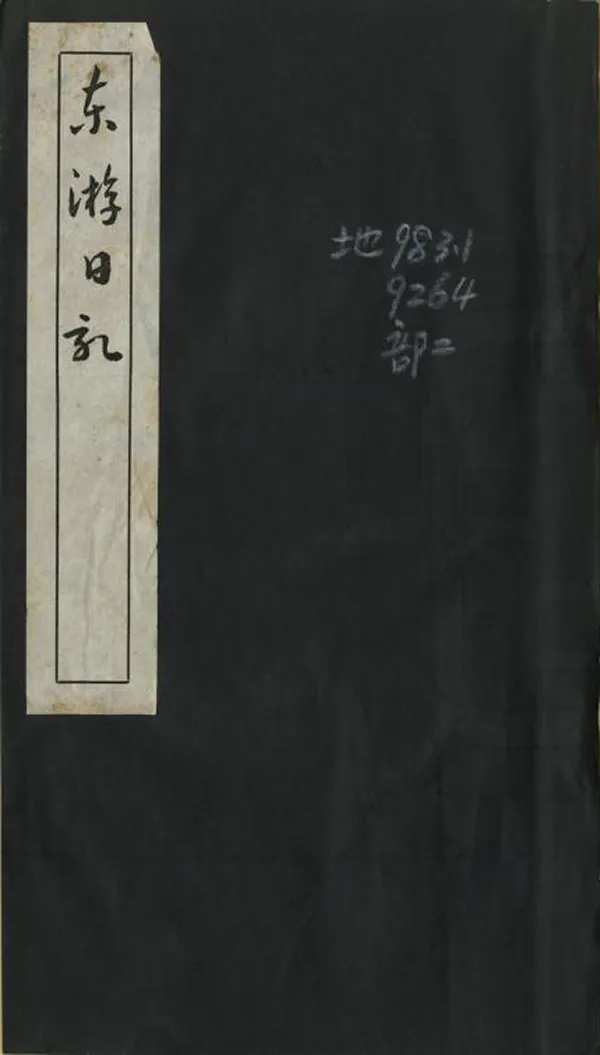 东游日记
地983.1
9264
部二